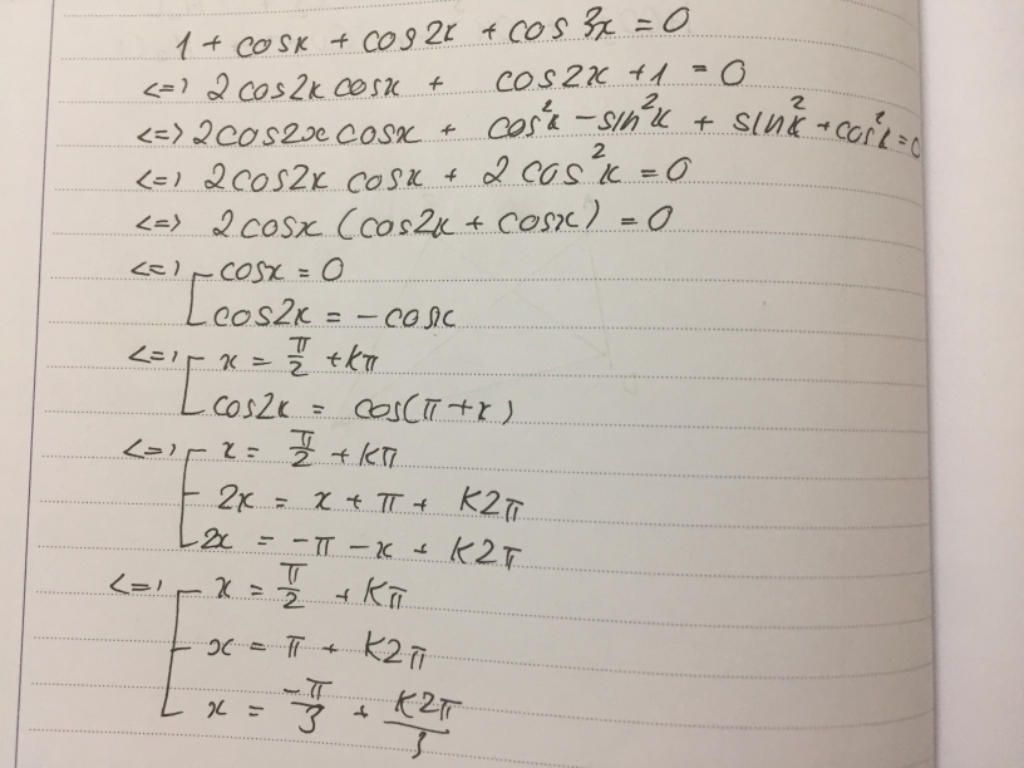 1 + cosx + cos2x + cos3x = 0
<=> 2cos2x cosx + cos2x + 1 = 0
<=> 2cos2x cosx + cos²x - sin²x + sin²x + cos²x = 0
<=> 2cos2x cosx + 2cos²x = 0
<=> 2cosx (cos2x + cosx) = 0
<=> [ cosx = 0
cos2x = - cosx
<=> [ x = π/2 + kπ
cos2x = cos(π + x)
<=> [ x = π/2 + kπ
2x = x + π + k2π
2x = -π - x + k2π
<=> [ x = π/2 + kπ
x = π + k2π
x = -π/3 + k2π/3